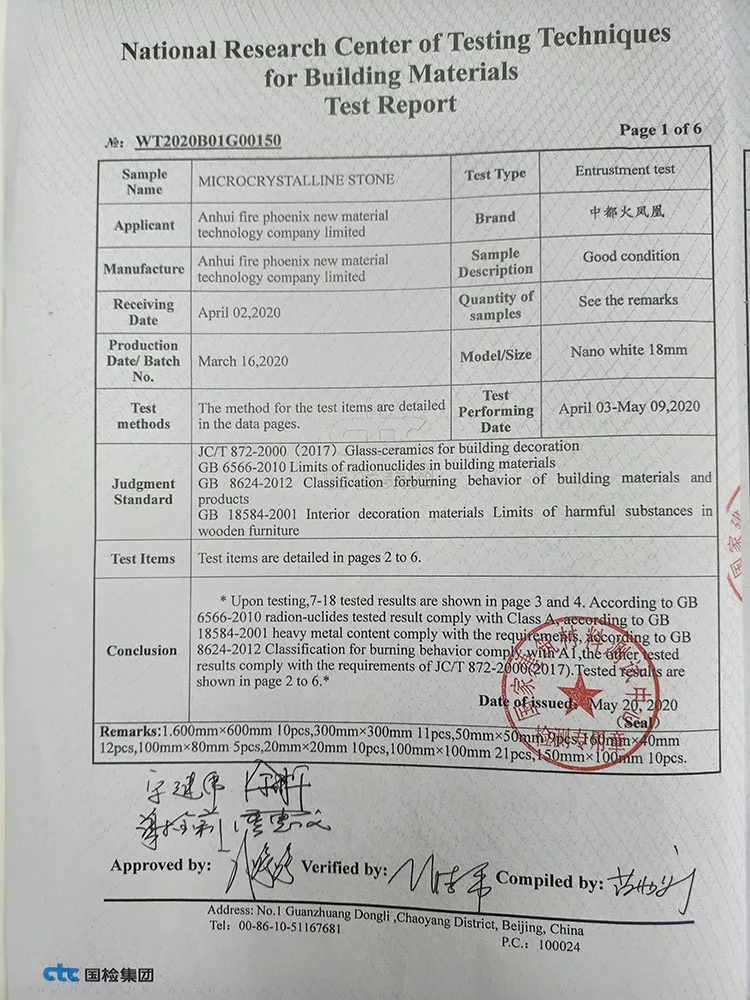 National Research Center of Testing Techniques
for Building Materials
Test Report
№: WT2020B01G00150
Page 1 of 6
Sample Name
MICROCRYSTALLINE STONE
Test Type
Entrustment test
Applicant
Anhui fire phoenix new material
technology company limited
Brand
中都火凤凰
Manufacture
Anhui fire phoenix new material
technology company limited
Sample Description
Good condition
Receiving Date
April 02,2020
Quantity of samples
See the remarks
Production Date/ Batch No.
March 16,2020
Model/Size
Nano white 18mm
Test methods
The method for the test items are detailed
in the data pages.
Test Performing Date
April 03-May 09,2020
Judgment Standard
JC/T 872-2000（2017）Glass-ceramics for building decoration
GB 6566-2010 Limits of radionuclides in building materials
GB 8624-2012 Classification forburning behavior of building materials and
products
GB 18584-2001 Interior decoration materials Limits of harmful substances in
wooden furniture
Test Items
Test items are detailed in pages 2 to 6.
Conclusion
* Upon testing,7-18 tested results are shown in page 3 and 4. According to GB
6566-2010 radion-uclides tested result comply with Class A, according to GB
18584-2001 heavy metal content comply with the requirements, according to GB
8624-2012 Classification for burning behavior comply with A1,the other tested
results comply with the requirements of JC/T 872-2000(2017).Tested results are
shown in page 2 to 6.*
Date of issued: May 20, 2020
(Seal)
国家建筑材料测试中心
检测专用章
Remarks:1.600mm×600mm 10pcs,300mm×300mm 11pcs,50mm×50mm 9pcs,160mm×40mm
12pcs,100mm×80mm 5pcs,20mm×20mm 10pcs,100mm×100mm 21pcs,150mm×100mm 10pcs.
Approved by:
Verified by:
Compiled by:
Address: No.1 Guanzhuang Dongli ,Chaoyang District, Beijing, China
Tel: 00-86-10-51167681
P.C.: 100024
ctc 国检集团